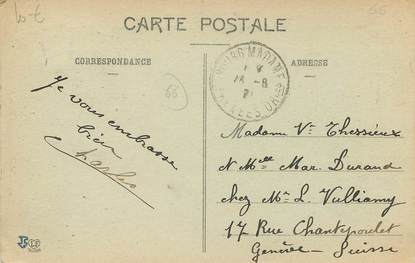 66
CARTE POSTALE
CORRESPONDANCE
ADRESSE
BOURG MADAME
18
-8
21
PYRÉNÉES ORles
66
Je vous embrasse
bien
Charles
Madame Vve Thessieux
et Melle Mar. Durand
chez Mr L. Vulliamy
17 Rue Chantepoulet
Genève - Suisse